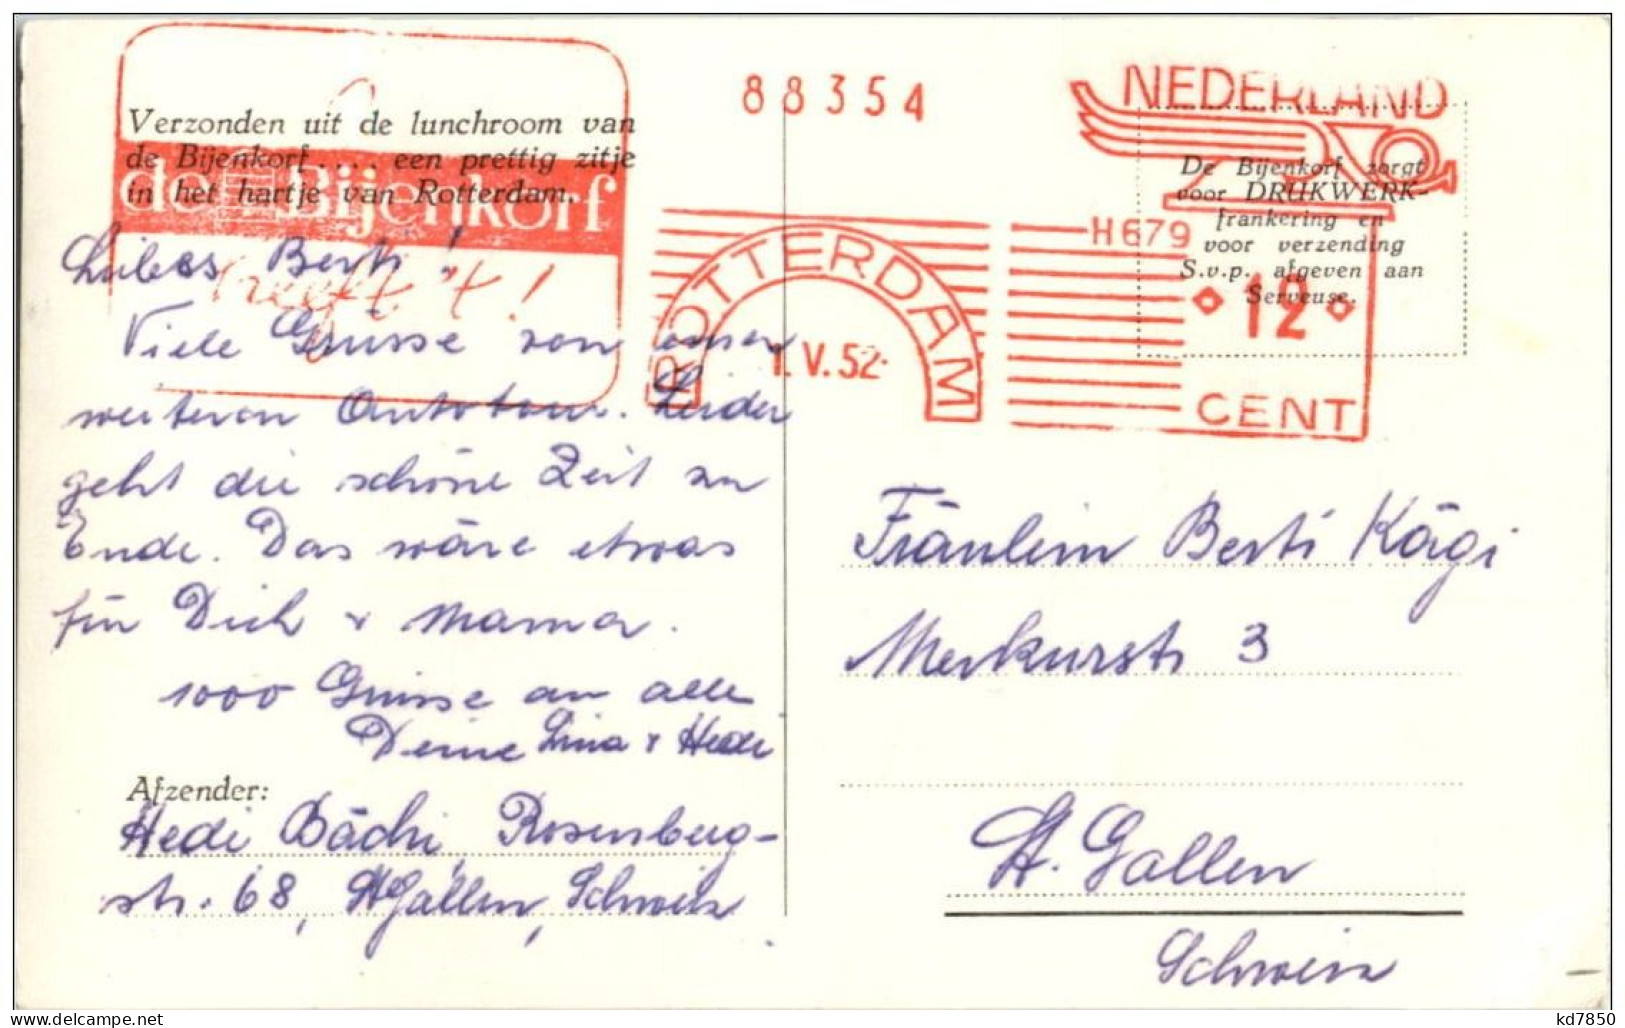 88354
NEDERLAND
Verzonden uit de lunchroom van
de Bijenkorf.... een prettig zitje
in het hartje van Rotterdam.
de Bijenkorf
heeft 't!
De Bijenkorf zorgt
voor DRUKWERK-
frankering en
voor verzending
S.v.p. afgeven aan
Serveuse.
H679
ROTTERDAM
1.V.52
12
CENT
Liebes Berti!
Viele Grüsse von einer
weiteren Autotour. Leider
geht die schöne Zeit zu
Ende. Das wäre etwas
für Dich & Mama.
1000 Grüsse an alle
Deine Lina & Hedi
Afzender:
Hedi Bächi, Rosenberg-
str. 68, St Gallen, Schweiz
Fräulein Berti Kägi
Merkurstr 3
St. Gallen
Schweiz
kd7850